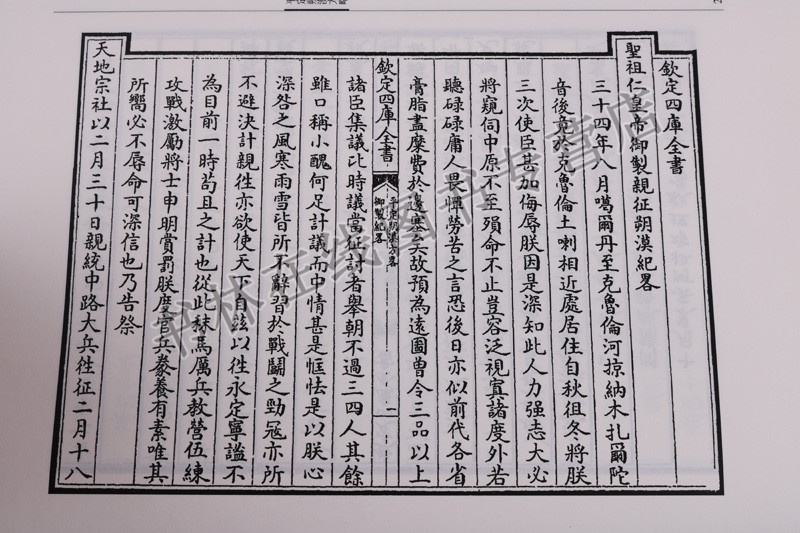 欽定四庫全書
聖祖仁皇帝御製親征朔漠紀畧
三十四年八月噶爾丹至克魯倫河掠納木扎爾陀
音後竟於克魯倫土喇相近處居住自秋徂冬將朕
三次使臣甚加侮辱朕因是深知此人力强志大必
將窺伺中原不至殞命不止豈容泛視寘諸度外若
聽碌碌庸人畏憚勞苦之言恐後日亦似前代各省
膏脂盡糜費於邊塞矣故預為遠圖曽令三品以上
欽定四庫全書
平定朔漠方畧
御製紀畧
一
諸臣集議此時議當征討者舉朝不過三四人其餘
雖口稱小醜何足計議而中情甚是恇怯是以朕心
深咎之風寒雨雪皆所不辭習於戰鬬之勁冦亦所
不避決計親徃亦欲使天下自兹以徃永定寧謐不
為目前一時苟且之計也從此秣馬厲兵教營伍練
攻戰激勵將士申明賞罰朕度官兵豢養有素唯其
所嚮必不辱命可深信也乃告祭
天地宗社以二月三十日親統中路大兵徃征二月十八
林在线图书专营店